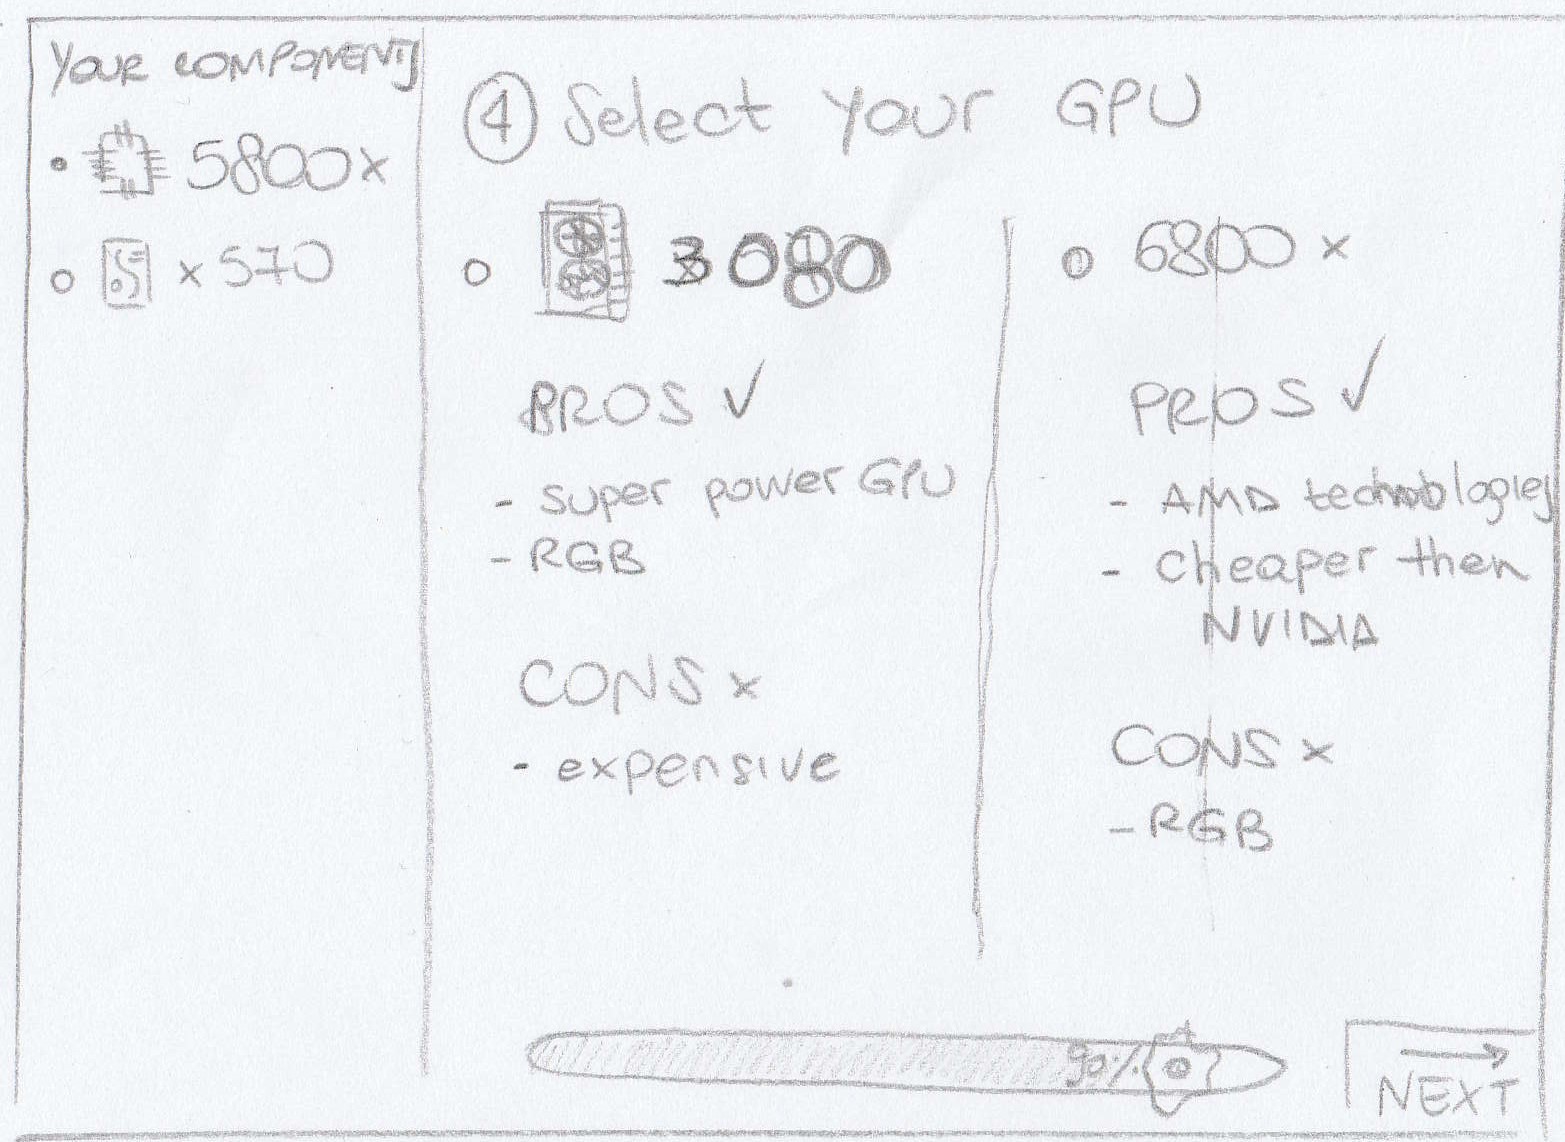 YOUR COMPONENTS
5800x
x570
4 Select your GPU
3080
PROS ✓
- super power GPU
- RGB
CONS x
- expensive
6800x
PROS ✓
- AMD technologies
- cheaper then
NVIDIA
CONS x
- RGB
90%
NEXT